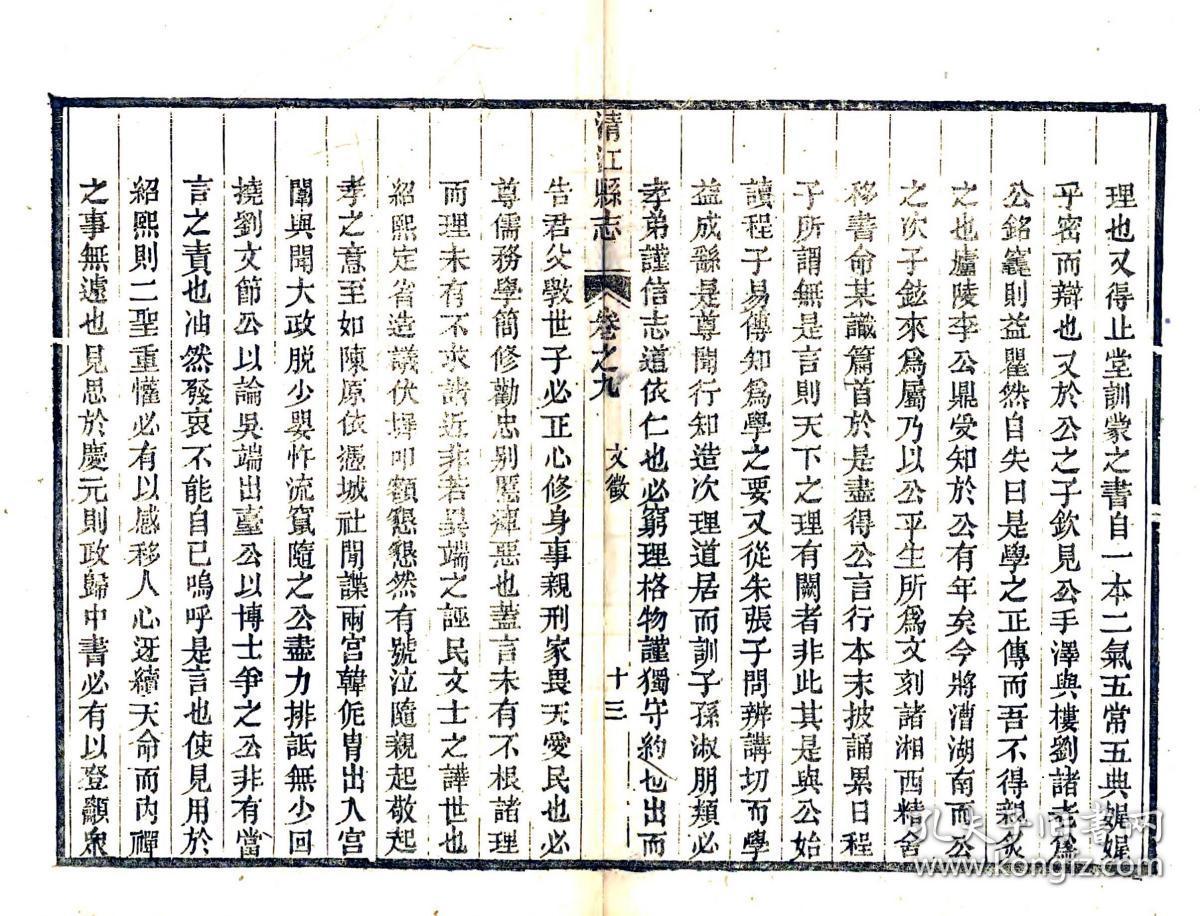 理也又得止堂訓蒙之書自一本二氣五常五典娓娓
乎密而辯也又於公之子欽見公手澤與樓劉諸老爲
公銘竁則益瞿然自失曰是學之正傳而吾不得親炙
之也廬陵李公鼎受知於公有年矣今將漕湖南而公
之次子鉉來爲屬乃以公平生所爲文刻諸湘西精舍
移書命某識篇首於是盡得公言行本末披誦累日程
子所謂無是言則天下之理有闕者非此其是與公始
讀程子易傳知爲學之要又從朱張子問辨講切而學
益成繇是尊聞行知造次理道居而訓子孫淑朋類必
孝弟謹信志道依仁也必窮理格物謹獨守約也出而
清江縣志
卷之九
文徵
十三
告君父敎世子必正心修身事親刑家畏天愛民也必
尊儒務學簡修勸忠别慝癉惡也蓋言未有不根諸理
而理未有不求諸近非若異端之誣民文士之譁世也
紹熙定省造議伏墀叩額懇懇然有號泣隨親起敬起
孝之意至如陳原依憑城社閒諜兩宮韓侂胄出入宮
闈與聞大政脱少嬰忤流竄隨之公盡力排詆無少回
撓劉文節公以論吳端出臺公以博士爭之公非有當
言之責也油然發衷不能自已嗚呼是言也使見用於
紹熙則二聖重懽必有以感移人心迓續天命而內禪
之事無遽也見思於慶元則政歸中書必有以登顯衆
孔夫子旧书网
www.kongfz.com